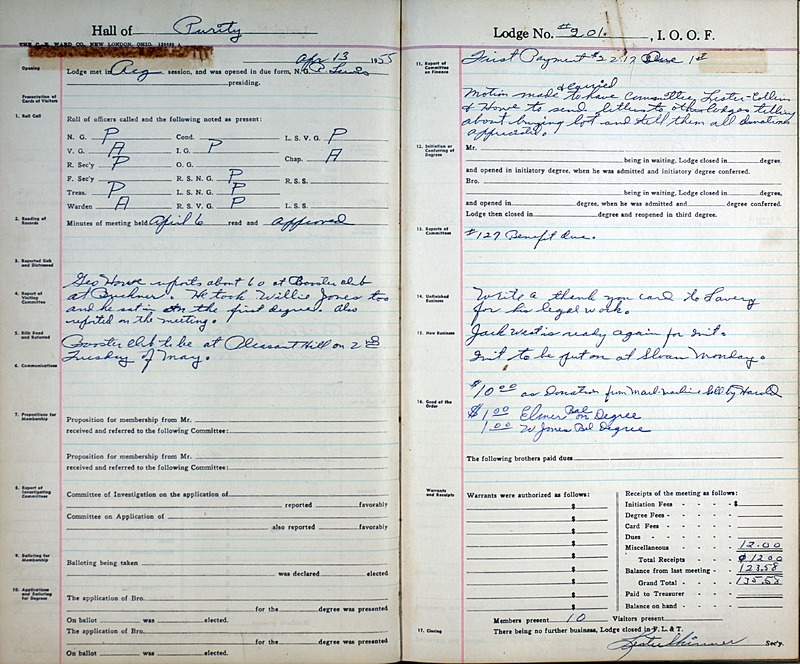 Hall of Purity
THE C. E. WARD CO. NEW LONDON, OHIO.
Apr 13 1955
Opening
Lodge met in Reg session, and was opened in due form, N. G. Lewis
presiding.
Presentation of Cards of Visitors
1. Roll Call
Roll of officers called and the following noted as present:
N. G. P Cond. L. S. V. G. P
V. G. A I. G. P Chap. A
R. Sec'y P O. G.
F. Sec'y R. S. N. G. P R. S. S.
Treas. P L. S. N. G. P
Warden A R. S. V. G. P L. S. S.
2. Reading of Records
Minutes of meeting held April 6 read and approved
3. Reported Sick and Distressed
4. Report of Visiting Committee
Geo Howe reports about 60 at Booster club
at Buckner. He took Willie Jones too
and he sat in on the first degree. Also
reported on the meeting.
5. Bills Read and Referred
Booster club to be at Pleasant Hill on 2nd
Tuesday of May.
6. Communications
7. Propositions for Membership
Proposition for membership from Mr.
received and referred to the following Committee:
Proposition for membership from Mr.
received and referred to the following Committee:
8. Report of Investigating Committees
Committee of Investigation on the application of
reported favorably
Committee on Application of
also reported favorably
9. Balloting for Membership
Balloting being taken
was declared elected.
10. Applications and Balloting for Degrees
The application of Bro.
for the degree was presented
On ballot was elected.
The application of Bro.
for the degree was presented
On ballot was elected.
Lodge No. #201. , I. O. O. F.
11. Report of Committee on Finance
First Payment $22.17 Due 1st
Motion made & carried to have committee, Lester-Ellis
& Howe to send letters to other lodges telling
about buying lot and tell them all donations
appreciated.
12. Initiation or Conferring of Degrees
Mr.
being in waiting, Lodge closed in degree.
and opened in initiatory degree, when he was admitted and initiatory degree conferred.
Bro.
being in waiting, Lodge closed in degree,
and opened in degree, when he was admitted and degree conferred.
Lodge then closed in degree and reopened in third degree.
13. Reports of Committees
$127 Benefit due.
14. Unfinished Business
Write a thank you card to Lavery
for his legal work.
15. New Business
Jack West is ready again for Init.
Init to be put on at Sloan Monday.
$10.00 as Donation from Machine sell by Harold
16. Good of the Order
$1.00 Elmer Bal on Degree
1.00 W Jones Bal Degree
The following brothers paid dues
Warrants and Receipts
Warrants were authorized as follows:
$
$
$
$
$
$
$
$
$
Receipts of the meeting as follows:
Initiation Fees - - - - $
Degree Fees
Card Fees
Dues
Miscellaneous 12.00
Total Receipts $12.00
Balance from last meeting 123.58
Grand Total 135.58
Paid to Treasurer
Balance on hand
Members present 10 Visitors present
17. Closing
There being no further business, Lodge closed in F. L. & T.
Lester Skinner Sec'y.